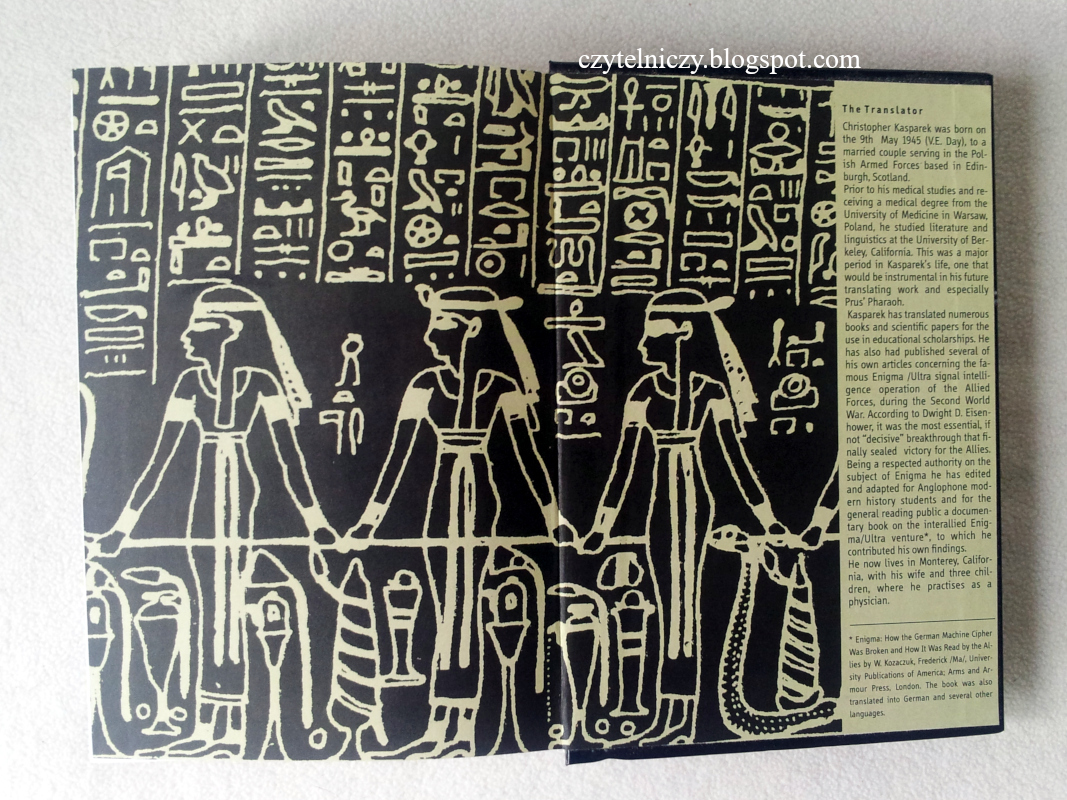 czytelniczy.blogspot.com
The Translator
Christopher Kasparek was born on
the 9th May 1945 (V.E. Day), to a
married couple serving in the Pol-
ish Armed Forces based in Edin-
burgh, Scotland.
Prior to his medical studies and re-
ceiving a medical degree from the
University of Medicine in Warsaw,
Poland, he studied literature and
linguistics at the University of Ber-
keley, California. This was a major
period in Kasparek's life, one that
would be instrumental in his future
translating work and especially
Prus' Pharaoh.
Kasparek has translated numerous
books and scientific papers for the
use in educational scholarships. He
has also had published several of
his own articles concerning the fa-
mous Enigma /Ultra signal intelli-
gence operation of the Allied
Forces, during the Second World
War. According to Dwight D. Eisen-
hower, it was the most essential, if
not "decisive" breakthrough that fi-
nally sealed victory for the Allies.
Being a respected authority on the
subject of Enigma he has edited
and adapted for Anglophone mod-
ern history students and for the
general reading public a documen-
tary book on the interallied Enig-
ma/Ultra venture*, to which he
contributed his own findings.
He now lives in Monterey, Califor-
nia, with his wife and three chil-
dren, where he practises as a
physician.
* Enigma: How the German Machine Cipher
Was Broken and How It Was Read by the Al-
lies by W. Kozaczuk, Frederick /Ma/, Univer-
sity Publications of America; Arms and Ar-
mour Press, London. The book was also
translated into German and several other
languages.